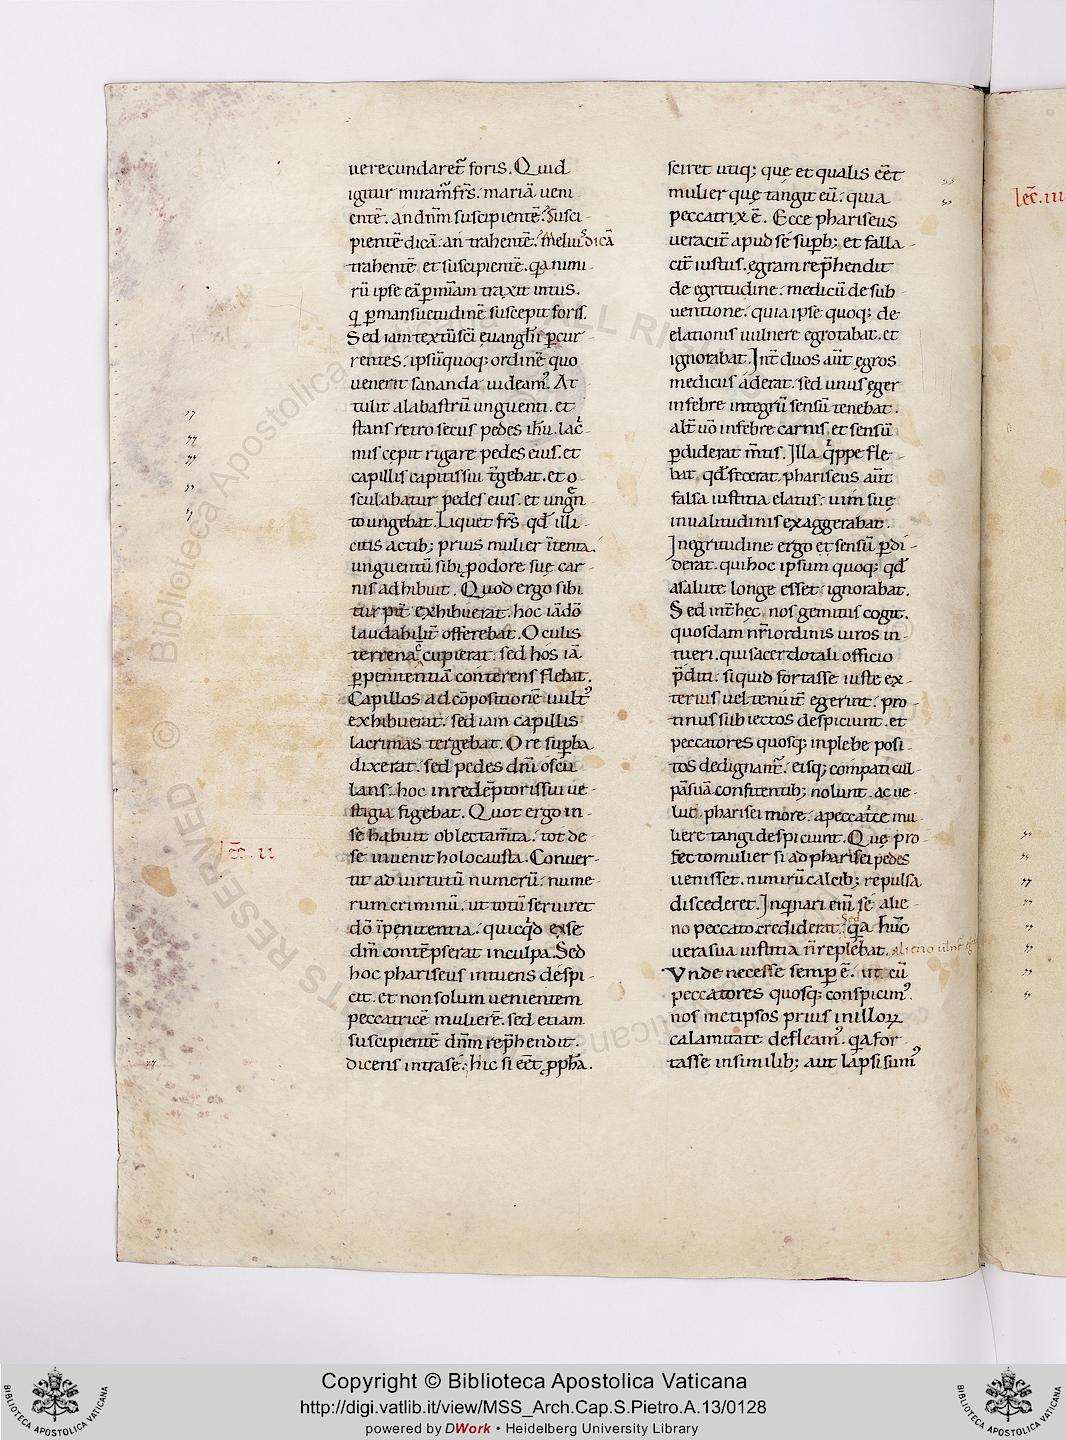 uerecundaret᷑ foris. Quid
igitur miram̄ fr̄s. mariā ueni
entē. an dn̄m suscipientē? Susci-
pientē dicā. an trahentē? Meliuˢ dicā
trahentē et suscipientē. qa nimi-
rū ipse eā ꝑ mīam traxit intus.
q̇ ꝑ mansuetudinē suscepit foris.
Sed iam textū sc̄i euanglīi ꝑcur-
rentes. ipsū quoq; ordinē quo
uenerit sananda uideamꝰ. At
tulit alabastrū unguenti. et
stans retro secus pedes ihū. lac̄-
mis cepit rigare pedes eius. et
capillis capitis sui t̄gebat. et o-
sculabatur pedes eius. et ungēn
to ungebat. Liquet fr̄s qđ illi-
citis actib; prius mulier ītenta.
unguentū sibi ꝓ odore suę car-
nis adhibuit. Quod ergo sibi
turpit̄ exhibuerat. hoc iā dō
laudabilit̄ offerebat. Oculis
terrena cupierat. sed hos iā
ꝑ penitentiā conterens flebat.
Capillos ad cōpositionē uultꝰ
exhibuerat. sed iam capillis
lacrimas tergebat. Ore supba
dixerat. sed pedes dn̄i oscu
lans. hoc in redēptoris sui ue-
stigia figebat. Quot ergo in-
se habuit oblectam̄ta. tot de-
se inuenit holocausta. Conuer-
tit ad uirtutū numerū. nume-
rum criminū. ut totū seruiret
dō ī penitentia. quicq̇d ex se
dm̄ contēpserat in culpa. Sed
hoc phariseus intuens despi-
cit. et non solum uenientem
peccatricē mulierē. sed etiam
suscipientē dn̄m rep̄hendit.
dicens intra se. hic si eēt ꝓph̄a.
lec̄. ii
sciret utiq; quę et qualis eēt
mulier quę tangit eū. quia
peccatrix ē. Ecce phariseus
ueracit̄ apud se supb; et falla-
cit̄ iustus. egram rep̄hendit
de egritudine. medicū de sub-
uentione. quia ipse quoq; de
elationis uulnere egrotabat. et
ignorabat. Int̄ duos aūt egros
medicus aderat. sed unus eger
in febre integrū sensū tenebat.
alt̄ uō in febre carnis. et sensū
ꝑdiderat m̄tis. Illa q̇ppe fle-
bat. qđ fecerat. phariseus aūt
falsa iustitia elatus. uim suę
inualitudinis exaggerabat.
In egritudine ergo et sensū ꝑdi-
derat. qui hoc ipsum quoq; qđ
a salute longe esset ignorabat.
Sed int̄ hęc nos gemitus cogit.
quosdam nr̄i ordinis uiros in-
tueri. qui sacerdotali officio
p̄diti. si quid fortasse iuste ex-
terius uel tenuit̄ egerint. pro-
tinus subiectos despiciunt. et
peccatores quosq; in plebe posi-
tos dedignant᷑. eisq; compati cul-
pā suā confitentib; nolunt. ac ue-
lut pharisei more. a peccat̄ce mu-
liere tangi despiciunt. Quę pro-
fecto mulier si ad pharisei pedes
uenisset. nimirū calcib; repulsa
discederet. Inq̇nari enī se alie-
no peccato crediderat. Sed qa hūc
uera sua iustitia n̄ replebat.
Vnde necesse semp ē. ut cū
peccatores quosq; conspicimꝰ.
nos metipsos prius in illoꝝ
calamitate defleamꝰ. qa for-
tasse in similib; aut lapsi sumꝰ
lec̄. iii
Copyright © Biblioteca Apostolica Vaticana
http://digi.vatlib.it/view/MSS_Arch.Cap.S.Pietro.A.13/0128
powered by DWork • Heidelberg University Library